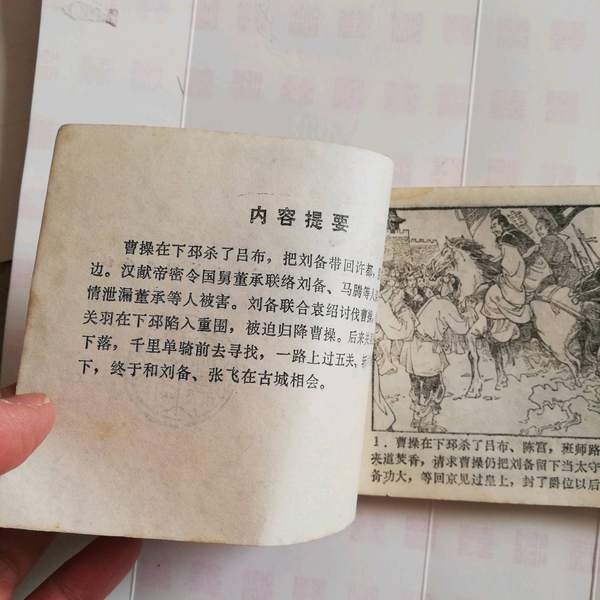 内容提要
曹操在下邳杀了吕布，把刘备带回许都，
边。汉献帝密令国舅董承联络刘备、马腾等人
情泄漏董承等人被害。刘备联合袁绍讨伐曹操，
关羽在下邳陷入重围，被迫归降曹操。后来关
下落，千里单骑前去寻找，一路上过五关，斩
下，终于和刘备、张飞在古城相会。
1．曹操在下邳杀了吕布、陈宫，班师路
来道焚香，请求曹操仍把刘备留下当太守
备功大，等回京见过皇上，封了爵位以后